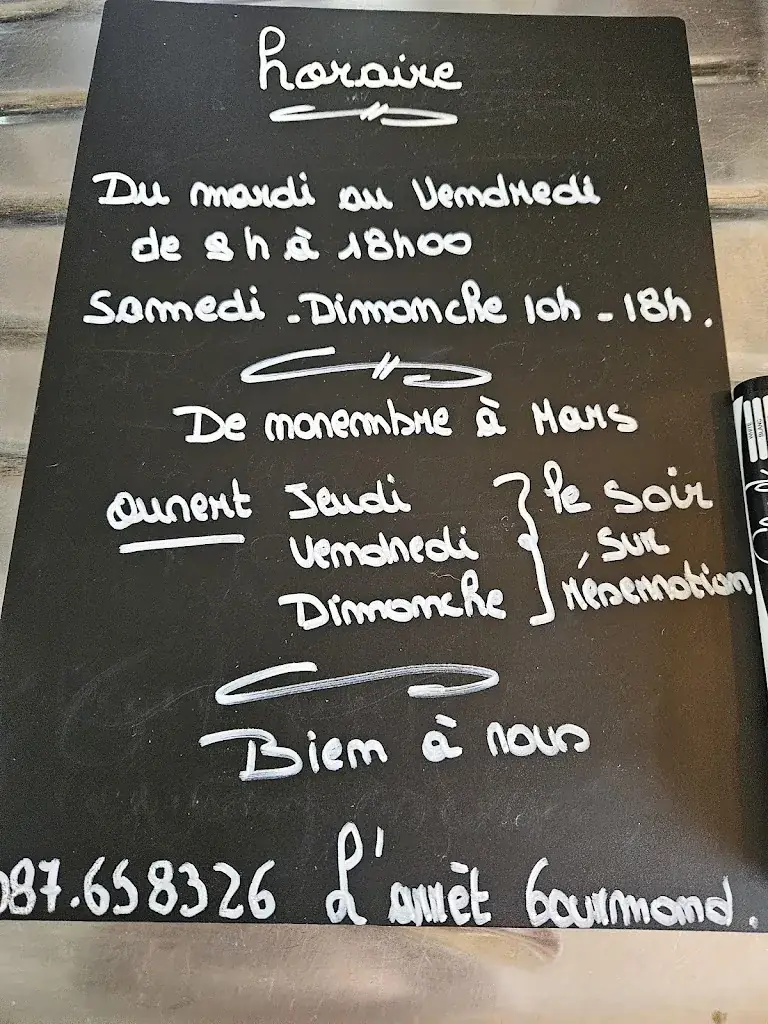 horaire
Du mardi au Vendredi
de 8h à 18h00
Samedi - Dimanche 10h - 18h.
De novembre à Mars
ouvert Jeudi
Vendredi
Dimanche
le soir
sur
réservation
Bien à vous
087.658326 L'arrèt Gourmand.